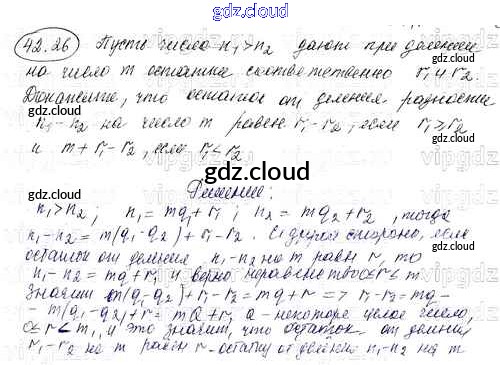 gdz.cloud
42.26 Пусть число n₁ > n₂ дают при делении
на число m остатки соответственно r₁ и r₂.
Докажите, что остаток от делен. разности
n₁ - n₂ на число m равен r₁ - r₂, если r₁ ≥ r₂
и m + r₁ - r₂, если r₁ < r₂
gdz.cloud
Решение:
n₁ > n₂; n₁ = mq₁ + r₁; n₂ = mq₂ + r₂, тогда
n₁ - n₂ = m(q₁ - q₂) + r₁ - r₂. С другой стороны, если
остаток от делен n₁ - n₂ на m равн r, то
n₁ - n₂ = mq + r, и верно неравенство 0 ≤ r < m
Значит m(q₁ - q₂) + r₁ - r₂ = mq + r => r₁ - r₂ = mq -
- m(q₁ - q₂) + r = ma + r, a - некоторое целое число,
0 ≤ r < m, и это значит, что остаток от делени
r₁ - r₂ на m равен r - остатку от делени n₁ - n₂ на m
gdz.cloud